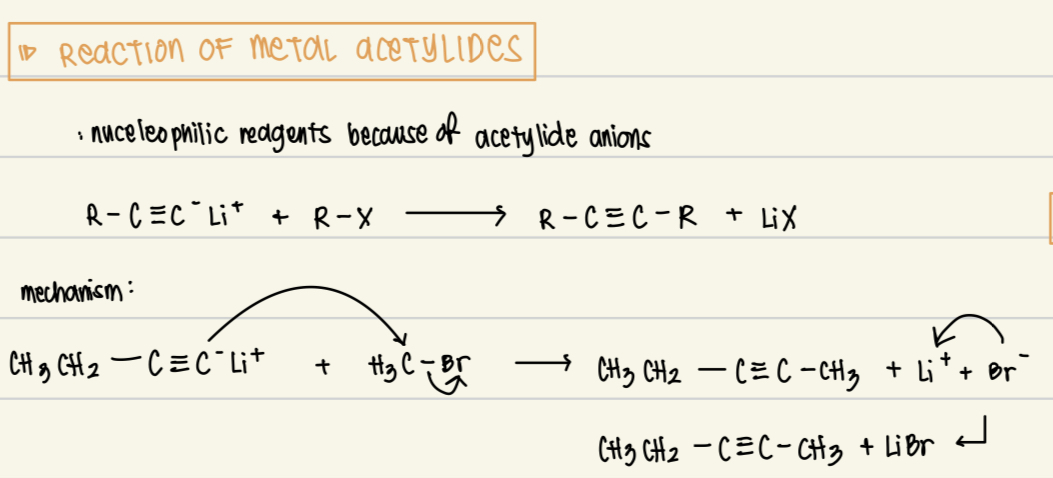 REACTION OF METAL ACETYLIDES
• nuceleophilic reagents because of acetylide anions
R-C≡C⁻Li⁺ + R-X ⟶ R-C≡C-R + LiX
mechanism:
CH₃CH₂—C≡C⁻Li⁺ + H₃C-Br ⟶ CH₃CH₂—C≡C-CH₃ + Li⁺ + Br⁻
CH₃CH₂-C≡C-CH₃ + LiBr ↵